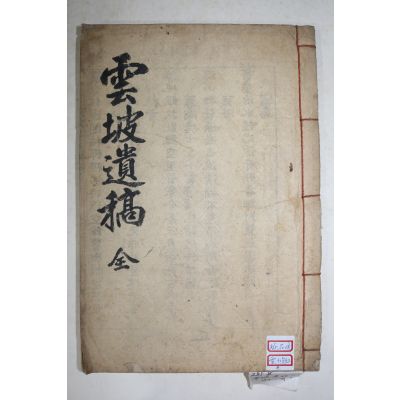 雲坡遺稿
全